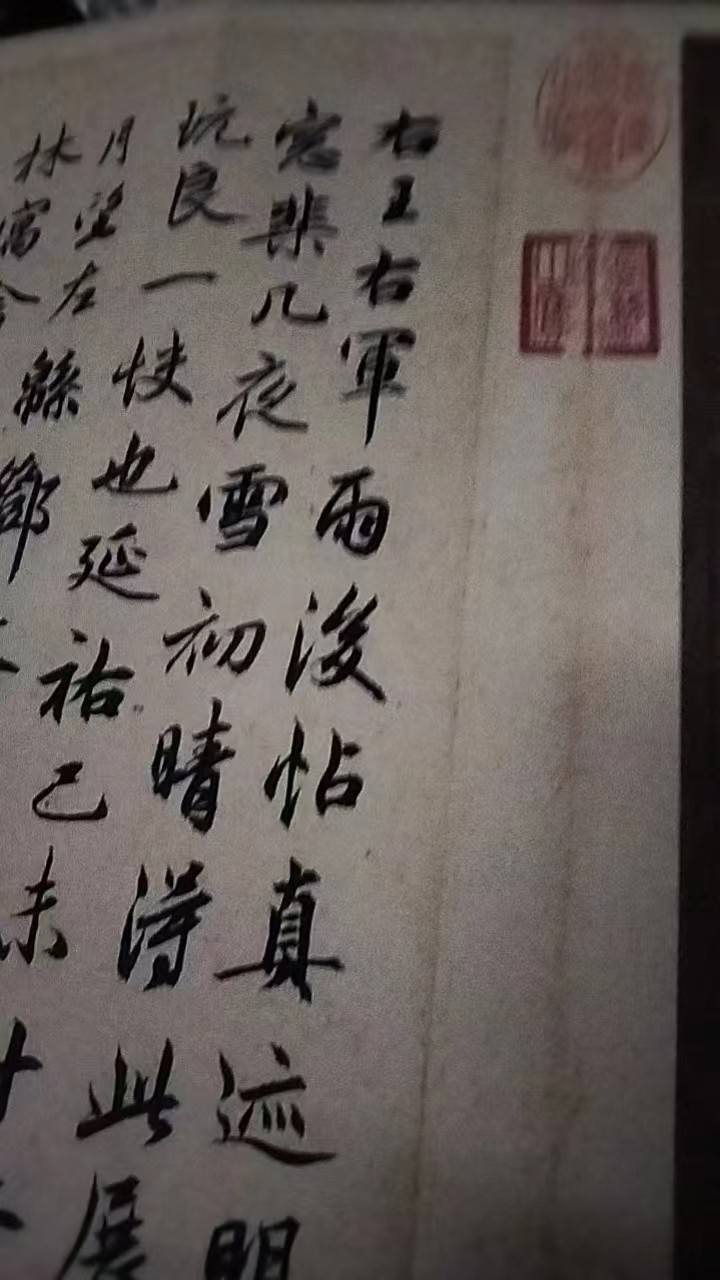 右王右軍雨後帖真迹明
窓棐几夜雪初晴得此展
玩良一快也延祐己未十
月望左緜鄧
林寓舍